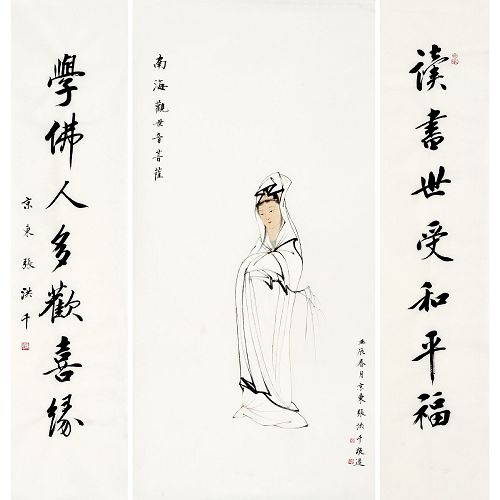 读書世受和平福
南海觀世音菩薩
壬辰春月京東張洪千敬造
學佛人多歡喜緣
京東張洪千